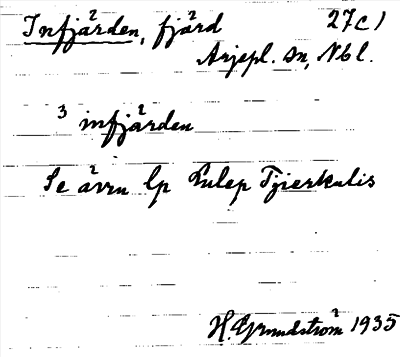 Infjärden, fjärd 27c1
Arjepl. sn, Nbl.
3 infjärden
Se ävru lp Lulep Tjierkalis
H. Grundström 1935